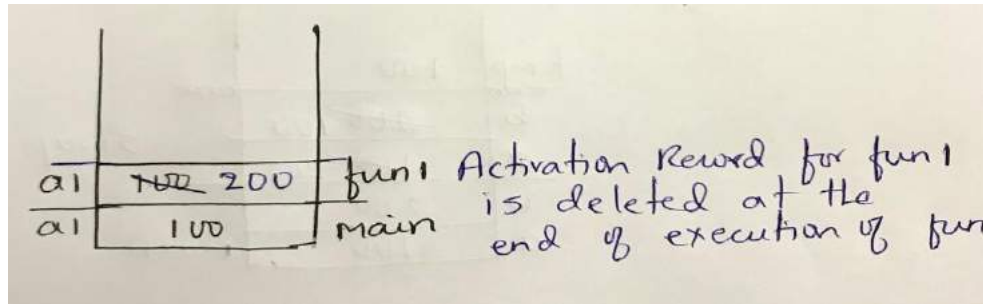 a1 100 200 fun1
a1 100 main
Activation Record for fun1
is deleted at the
end of execution of fun